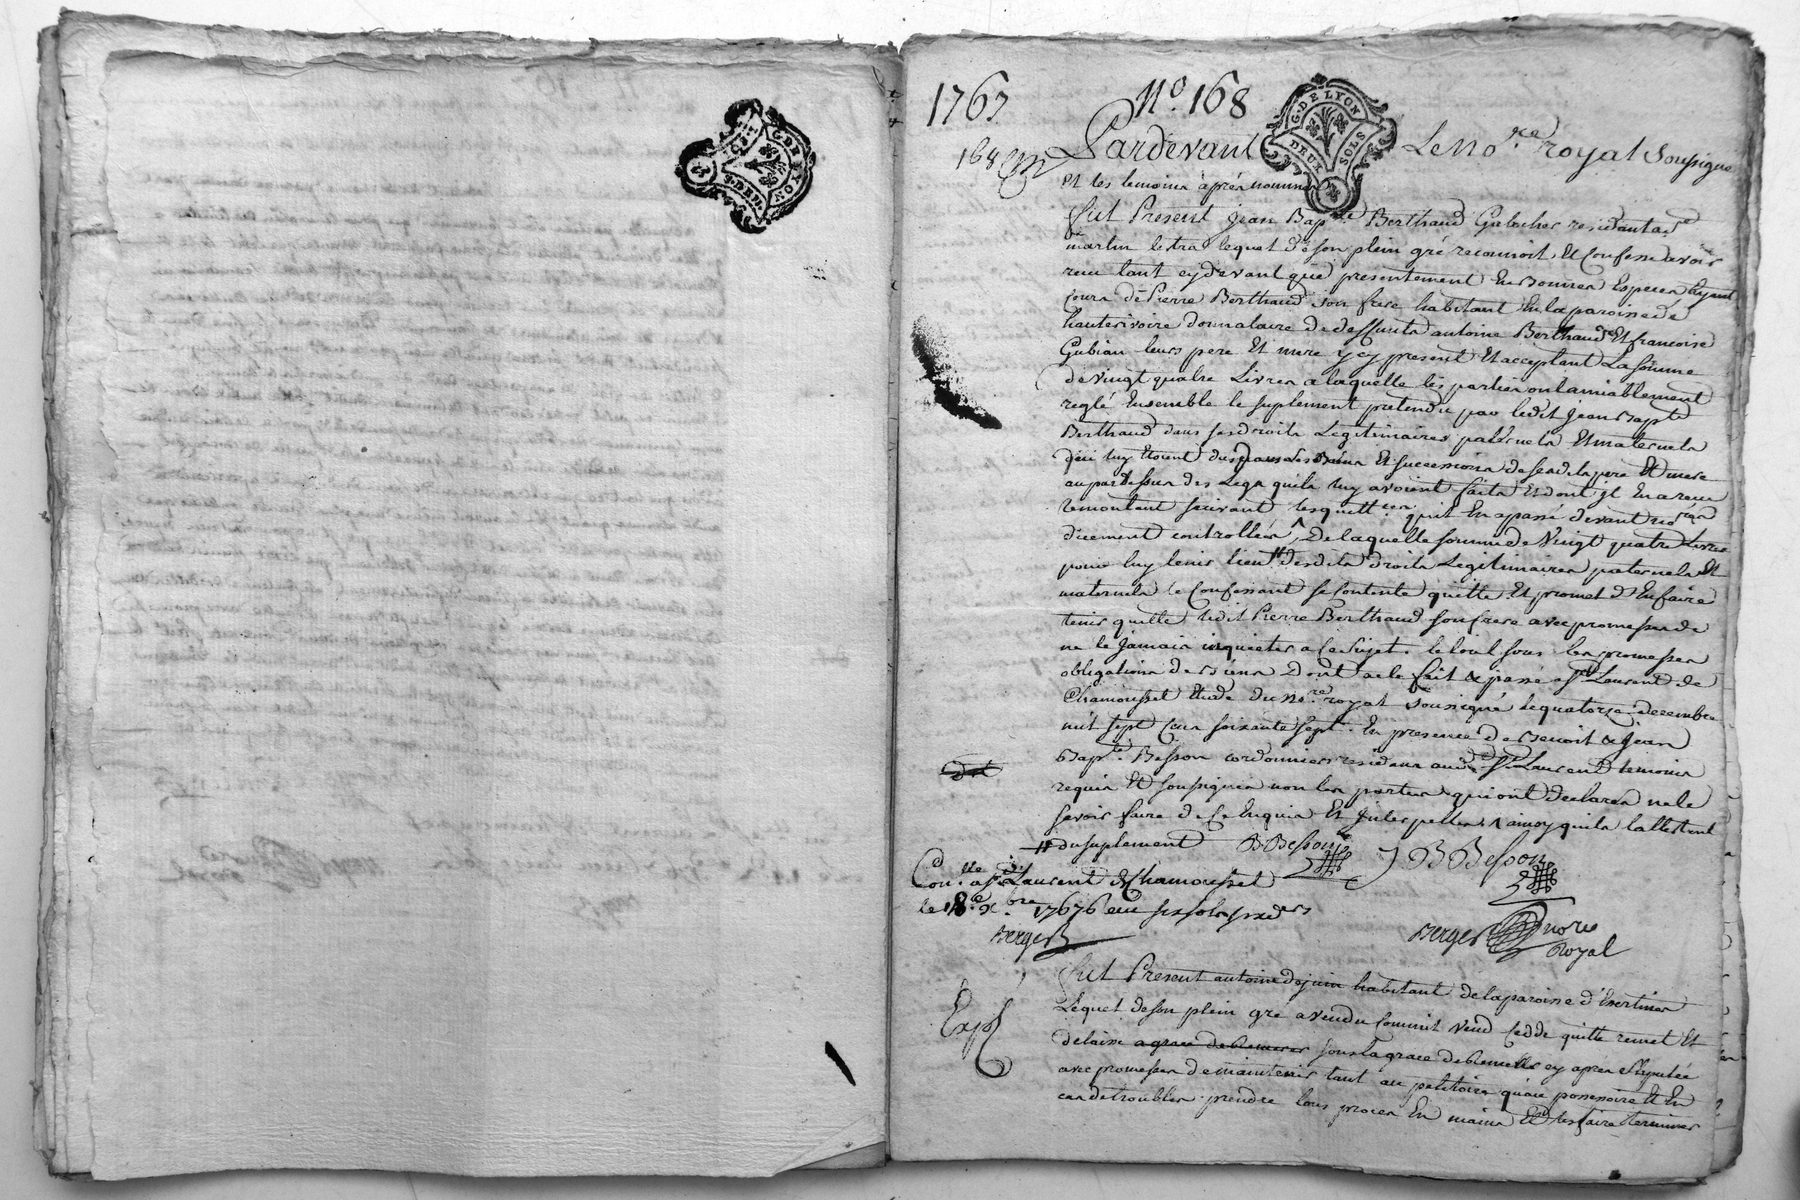 G. DE LYON
1767 No. 168
G. DE LYON
DEUX SOLS
168
Pardevant Le No.re royal soussigné
Et les temoins après nommés
Fut Present Jean Bap.te Berthaud Galocher residant a
martin lestra lequel de son plein gré reconnoit Et Confesse avoir
reçu tant cydevant que presentement En bonnes Especes ayant
cours de Pierre Berthaud son frere habitant En la paroisse de
hauterivoire donnataire de deffunts antoine Berthaud Et francoise
Gubian leurs pere Et mere ycy present Et acceptant La somme
de vingt quatre Livres a laquelle les parties ont amiablement
reglé Ensemble le suplement pretendu par ledit Jean Bapt.e
Berthaud dans ses droits Legitimaires paternels Et maternels
qui luy Etoient dus dans les Biens Et successions de sesdits pere Et mere
aupardessus des Legs quils luy avoient faits Et dont il En a reçu
le montant suivant les quitt.ces quil En a passé devant no.res
duement controllées, De laquelle somme de Vingt quatre Livres
pour luy tenir lieu # desdits droits Legitimaires paternels Et
maternels le Confessant se contente quitte Et promet d'En faire
tenir quitte ledit Pierre Berthaud son frere avec promesse de
ne le Jamais inquieter a Ce sujet. le tout sous les promesses
obligations de biens Dont acte fait & passé a S.t Laurent de
Chamousset Etude du No.re royal soussigné le quatorze decembre
mil sept Cens soixante sept. En presence de Benoit & Jean
Bap.te Besson cordonniers residens aud. S.t Laurent temoins
requis Et soussignés non les parties qui ont declarés ne le
savoir faire de Ce Enquis Et Interpellés ainsy quils l'attestent
# du suplement B Besson J B Besson
Con.lle a S.t Laurent de Chamousset
le 18.e x.bre 1767 reçu six sols six d.ers
Berger Berger no.re
Royal
Exp.
Fut Present antoine dejuin habitant de la paroisse d'Essertines
Lequel de son plein gré a vendu Comme il vend Cedde quitte remet Et
delaisse a grace de remerer sous la grace de Remerer cy apres Stipulée
avec promesses de maintenir tant au petitoire qu'au possessoire Et En
cas de troubles prendre tous proces En mains Et les faire terminer